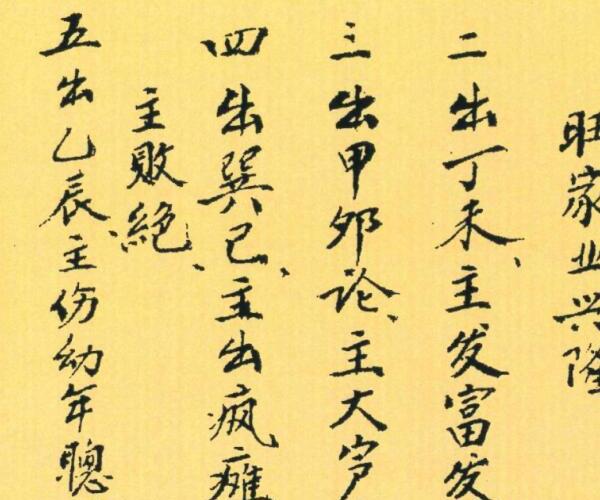 旺家业兴隆
二出丁未、主发富发
三出甲卯论、主大
四出巽已、主出疯瘫
主敗絕、
五出乙辰、主伤幼年聰